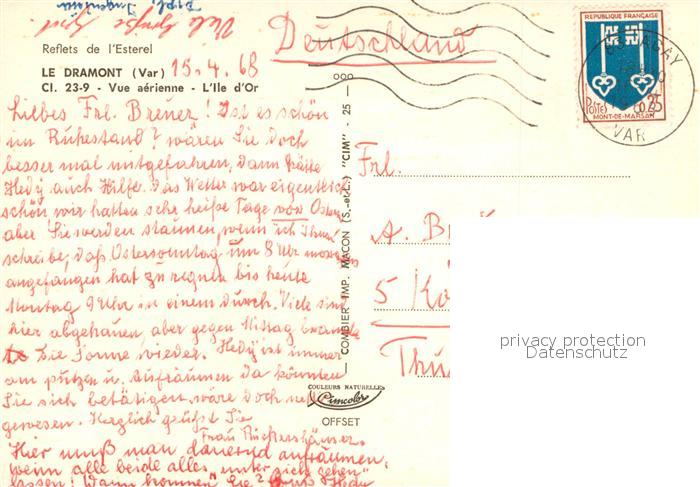 Viele Grüße
Dipl. Ingenieur
Reflets de l'Esterel
LE DRAMONT (Var) 15.4.68
Cl. 23-9 - Vue aérienne - L'Ile d'Or
Liebes Frl. Breuer! Ist es schön
im Ruhestand? wären Sie doch
besser mal mitgefahren, dann hätte
Hedy auch Hilfe. Das Wetter war eigentlich
schön wir hatten sehr heiße Tage vor Ostern
aber Sie werden staunen, wenn ich Ihnen
schreibe, daß Ostersonntag um 8 Uhr morgens
angefangen hat zu regnen bis heute
Montag 9 Uhr in einem durch. Viele sind
hier abgehauen, aber gegen Mittag brannte
die Sonne wieder. Hedy ist immer
am putzen u. Aufräumen Da könnten
Sie sich betätigen, wäre doch nett
gewesen. Herzlich grüßt Sie
Frau Rückershäuser.
Hier muß man dauernd aufräumen,
wenn alle beide alles "unter sich gehen"
lassen! Wann kommen Sie? Gruß Hedy
Deutschland
COMBIER IMP. MACON (S.-et-L.) "CIM" - 25 -
COULEURS NATURELLES
Cimcolor
OFFSET
REPUBLIQUE FRANÇAISE
POSTES 0,25
MONT-DE-MARSAN
AGAY
VAR
Frl.
A. Br
5 Kö
Thu
privacy protection
Datenschutz